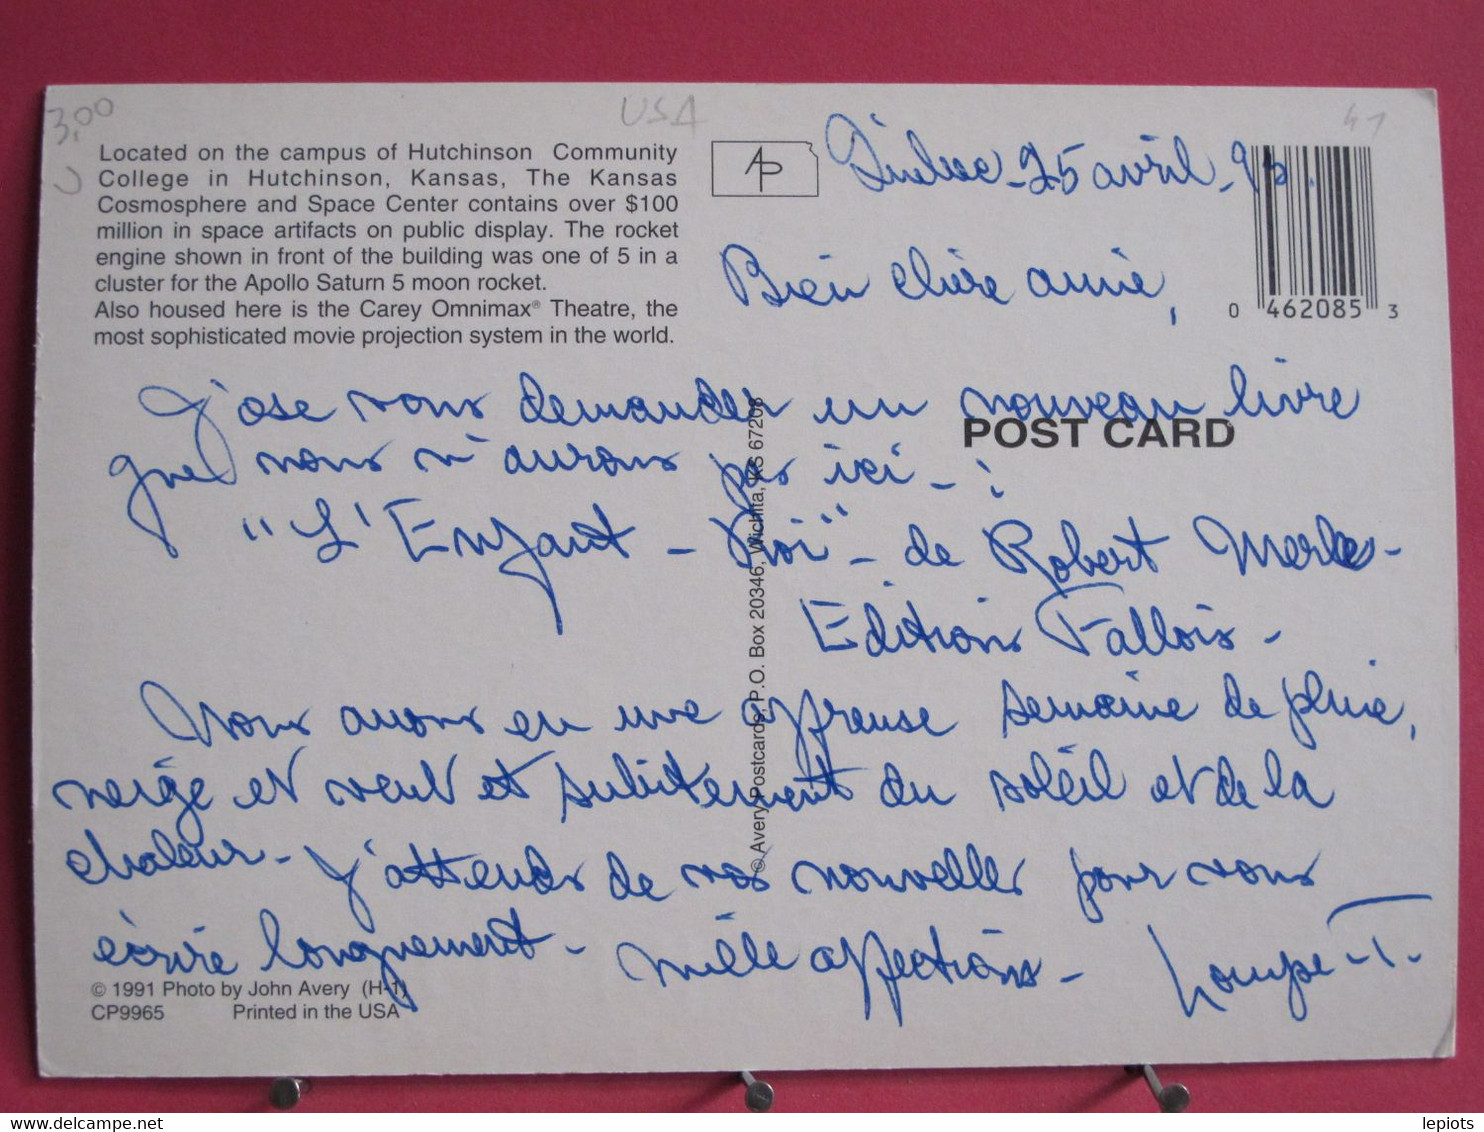 3,00
USA
41
Located on the campus of Hutchinson Community
College in Hutchinson, Kansas, The Kansas
Cosmosphere and Space Center contains over $100
million in space artifacts on public display. The rocket
engine shown in front of the building was one of 5 in a
cluster for the Apollo Saturn 5 moon rocket.
Also housed here is the Carey Omnimax® Theatre, the
most sophisticated movie projection system in the world.
AP
Québec - 25 avril - 93.
Bien chère amie,
0 462085 3
POST CARD
J'ose vous demander un nouveau livre
que nous n'aurons pas ici - :
"L'Enfant - Roi" - de Robert Merle -
Editions Fallois -
Nous avons eu une affreuse semaine de pluie,
neige et vent et subitement du soleil et de la
chaleur - J'attends de vos nouvelles pour vous
écrire longuement - Mille affections -
© Avery Postcards, P.O. Box 20346, Wichita, KS 67208
© 1991 Photo by John Avery (H-1)
CP9965 Printed in the USA
delcampe.net
lepiots